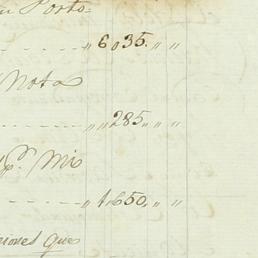 Porto
„ 6„035. „ „
Nota
„ „ 285. „ „
p.ª Mis
„ 1„650. „ „
que